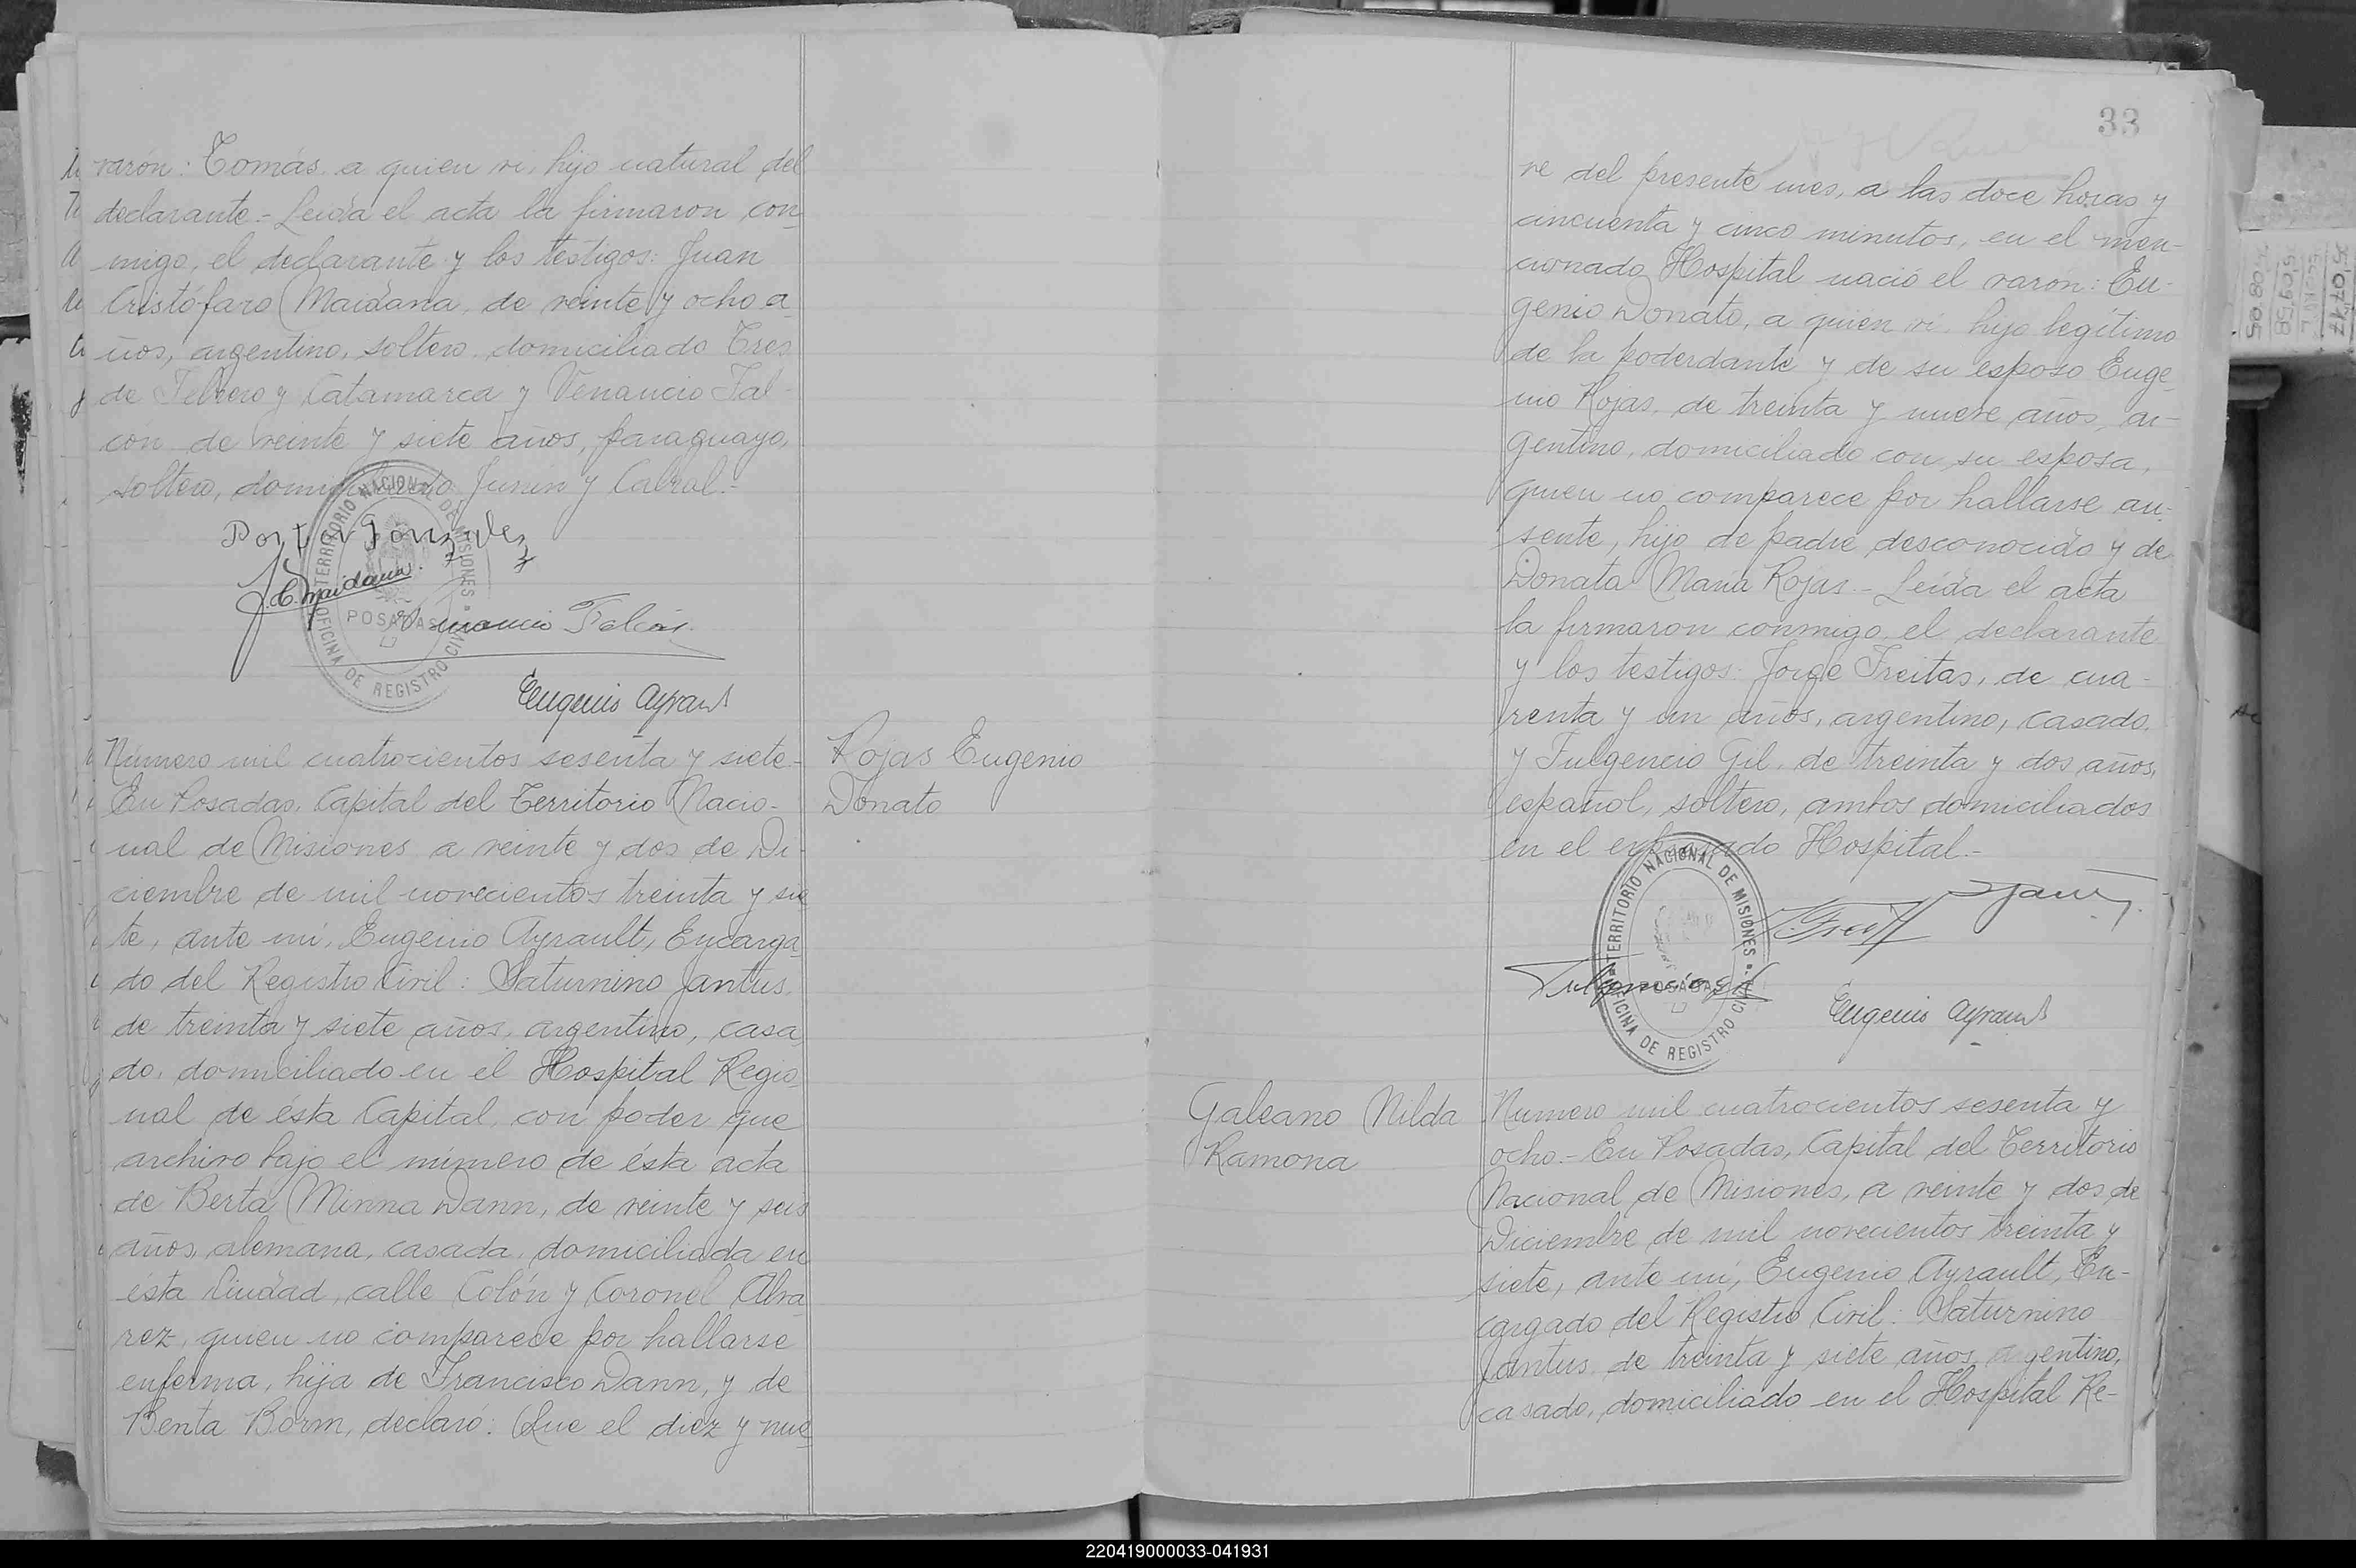 varón: Tomás, a quien vi, hijo natural del
declarante.- Leída el acta la firmaron con
migo, el declarante y los testigos: Juan
Cristófaro Maidana, de veinte y ocho a
ños, argentino, soltero, domiciliado Tres
de Febrero y Catamarca y Venancio Fal-
cón de veinte y siete años, paraguayo,
soltero, domiciliado Junín y Cabral.-
Gonzalez
J.C. Maidana.
Venancio Falcón.
Eugenio Ayrault
TERRITORIO NACIONAL DE MISIONES
POSADAS
OFICINA DE REGISTRO CIVIL
Número mil cuatrocientos sesenta y siete.-
En Posadas, Capital del Territorio Nacio-
nal de Misiones, a veinte y dos de Di-
ciembre de mil novecientos treinta y sie
te, ante mí, Eugenio Ayrault, Encarga
do del Registro Civil: Saturnino Jantus,
de treinta y siete años, argentino, casa
do, domiciliado en el Hospital Regio
nal de ésta Capital, con poder que
archivo bajo el número de ésta acta
de Berta Minna Dann, de veinte y seis
años, alemana, casada, domiciliada en
ésta Ciudad, calle Colón y Coronel Alva
rez, quien no comparece por hallarse
enferma, hija de Francisco Dann, y de
Benta Borm, declaró: Que el diez y nue
Rojas Eugenio
Donato
33
ve del presente mes, a las doce horas y
cincuenta y cinco minutos, en el men-
cionado Hospital nació el varón: Eu-
genio Donato, a quien vi, hijo legítimo
de la poderdante y de su esposo Euge
nio Rojas, de treinta y nueve años, ar-
gentino, domiciliado con su esposa,
quien no comparece por hallarse au-
sente, hijo de padre desconocido y de
Donata María Rojas.- Leída el acta
la firmaron conmigo, el declarante
y los testigos: Jorge Freitas, de cua-
renta y un años, argentino, casado,
y Fulgencio Gil, de treinta y dos años,
español, soltero, ambos domiciliados
en el expresado Hospital.-
Fulgencio Gil
Eugenio Ayrault
TERRITORIO NACIONAL DE MISIONES
POSADAS
OFICINA DE REGISTRO CIVIL
Galeano Nilda
Ramona
Número mil cuatrocientos sesenta y
ocho.- En Posadas, Capital del Territorio
Nacional de Misiones, a veinte y dos de
Diciembre de mil novecientos treinta y
siete, ante mí, Eugenio Ayrault, En-
cargado del Registro Civil: Saturnino
Jantus, de treinta y siete años, argentino,
casado, domiciliado en el Hospital Re-
220419000033-041931